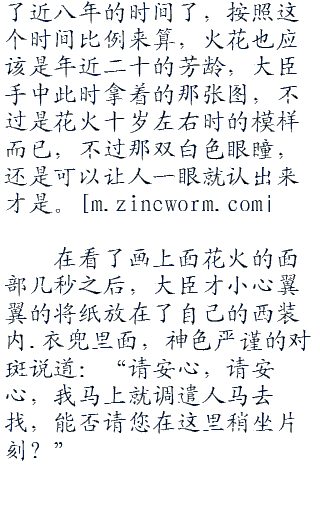 了近八年的时间了，按照这
个时间比例来算，火花也应
该是年近二十的芳龄，大臣
手中此时拿着的那张图，不
过是花火十岁左右时的模样
而已，不过那双白色眼瞳，
还是可以让人一眼就认出来
才是。[m.zincworm.com|
在看了画上面花火的面
部几秒之后，大臣才小心翼
翼的将纸放在了自己的西装
内.衣兜里面，神色严谨的对
斑说道：“请安心，请安
心，我马上就调遣人马去
找，能否请您在这里稍坐片
刻？”